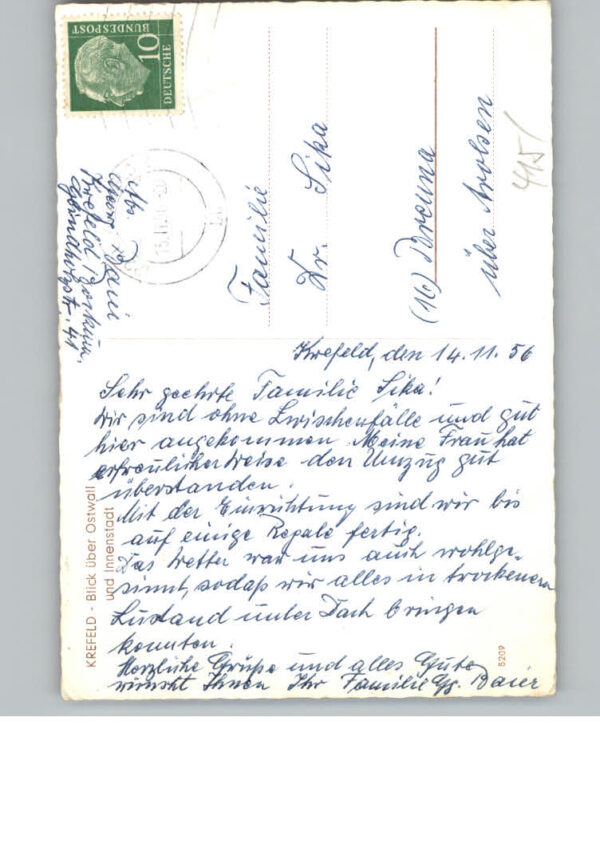 DEUTSCHE
BUNDESPOST
10
Abs.
Baier
Krefeld Bockum,
41
Familie
Dr. Sika
(16) Breuna
über Arolsen
415/
Krefeld, den 14.11.56
Sehr geehrte Familie Sika!
Wir sind ohne Zwischenfälle und gut
hier angekommen. Meine Frau hat
erfreulicherweise den Umzug gut
überstanden.
Mit der Einrichtung sind wir bis
auf einige Regale fertig.
Das Wetter war uns auch wohlge-
sinnt, sodaß wir alles in trockenem
Zustand unter Dach bringen
konnten.
Herzliche Grüße und alles Gute
wünscht Ihnen Ihr Familie Gg. Baier
KREFELD - Blick über Ostwall
und Innenstadt
5209